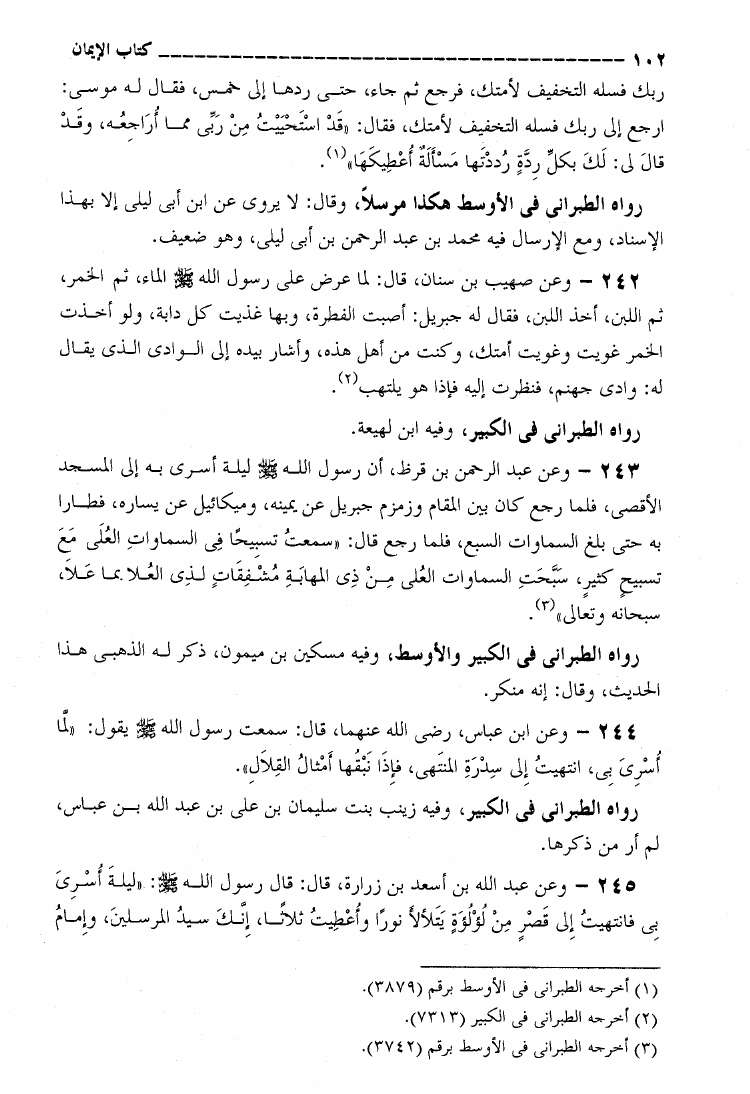 ١٠٢ ـــــــــــــــــــــــــــــــــــــــــــــــــــ كتاب الإيمان
ربك فسله التخفيف لأمتك، فرجع ثم جاء، حتى ردها إلى خمس، فقال له موسى:
ارجع إلى ربك فسله التخفيف لأمتك، فقال: «قَدْ اسْتَحْيَيْتُ مِنْ رَبِّى مما أُرَاجعُه، وقَدْ
قالَ لى: لَكَ بكلِّ رِدَّةٍ رُددْتَها مَسْأَلَةٌ أُعْطِيكَهَا»(١).
رواه الطبرانى فى الأوسط هكذا مرسلاً، وقال: لا يروى عن ابن أبى ليلى إلا بهذا
الإسناد، ومع الإرسال فيه محمد بن عبد الرحمن بن أبى ليلى، وهو ضعيف.
٢٤٢ – وعن صهيب بن سنان، قال: لما عرض على رسول الله ﷺ الماء، ثم الخمر،
ثم اللبن، أخذ اللبن، فقال له جبريل: أصبت الفطرة، وبها غذيت كل دابة، ولو أخذت
الخمر غويت وغويت أمتك، وكنت من أهل هذه، وأشار بيده إلى الوادى الذى يقال
له: وادى جهنم، فنظرت إليه فإذا هو يلتهب(٢).
رواه الطبرانى فى الكبير، وفيه ابن لهيعة.
٢٤٣ – وعن عبد الرحمن بن قرظ، أن رسول الله ﷺ ليلة أسرى به إلى المسجد
الأقصى، فلما رجع كان بين المقام وزمزم جبريل عن يمينه، وميكائيل عن يساره، فطارا
به حتى بلغ السماوات السبع، فلما رجع قال: «سمعتُ تسبيحًا فِى السماواتِ العُلَى مَعَ
تسبيحٍ كثيرٍ، سَبَّحَتِ السماوات العُلى مِنْ ذِى المهابَةِ مُشْفِقَاتٍ لذِى العُلا بما عَلاَ،
سبحانه وتعالى»(٣).
رواه الطبرانى فى الكبير والأوسط، وفيه مسكين بن ميمون، ذكر له الذهبى هذا
الحديث، وقال: إنه منكر.
٢٤٤ – وعن ابن عباس، رضى الله عنهما، قال: سمعت رسول الله ﷺ يقول: «لَّما
أُسْرِىَ بى، انتهيتُ إلى سِدْرَةِ المنتَهى، فإذَا نَبْقُها أمْثالُ القِلاَلِ».
رواه الطبرانى فى الكبير، وفيه زينب بنت سليمان بن على بن عبد الله بن عباس،
لم أر من ذكرها.
٢٤٥ – وعن عبد الله بن أسعد بن زرارة، قال: قال رسول الله ﷺ: «ليلةَ أُسْرِىَ
بى فانتهيتُ إلى قَصْرٍ مِنْ لُؤْلُؤَةٍ يَتَلأْلأَ نورًا وأُعْطِيتُ ثلاثًا، إنَّكَ سيدُ المرسلينَ، وإمامُ
(١) أخرجه الطبرانى فى الأوسط برقم (٣٨٧٩).
(٢) أخرجه الطبرانى فى الكبير (٧٣١٣).
(٣) أخرجه الطبرانى فى الأوسط برقم (٣٧٤٢).